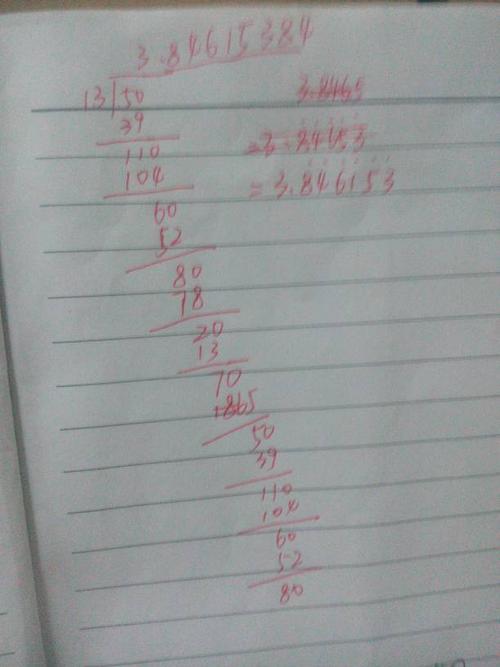 3.84615384
13 50
39
110
104
60
52
80
78
20
13
70
65
50
39
110
104
60
52
80
3.8465
=3.84153
=3.846153